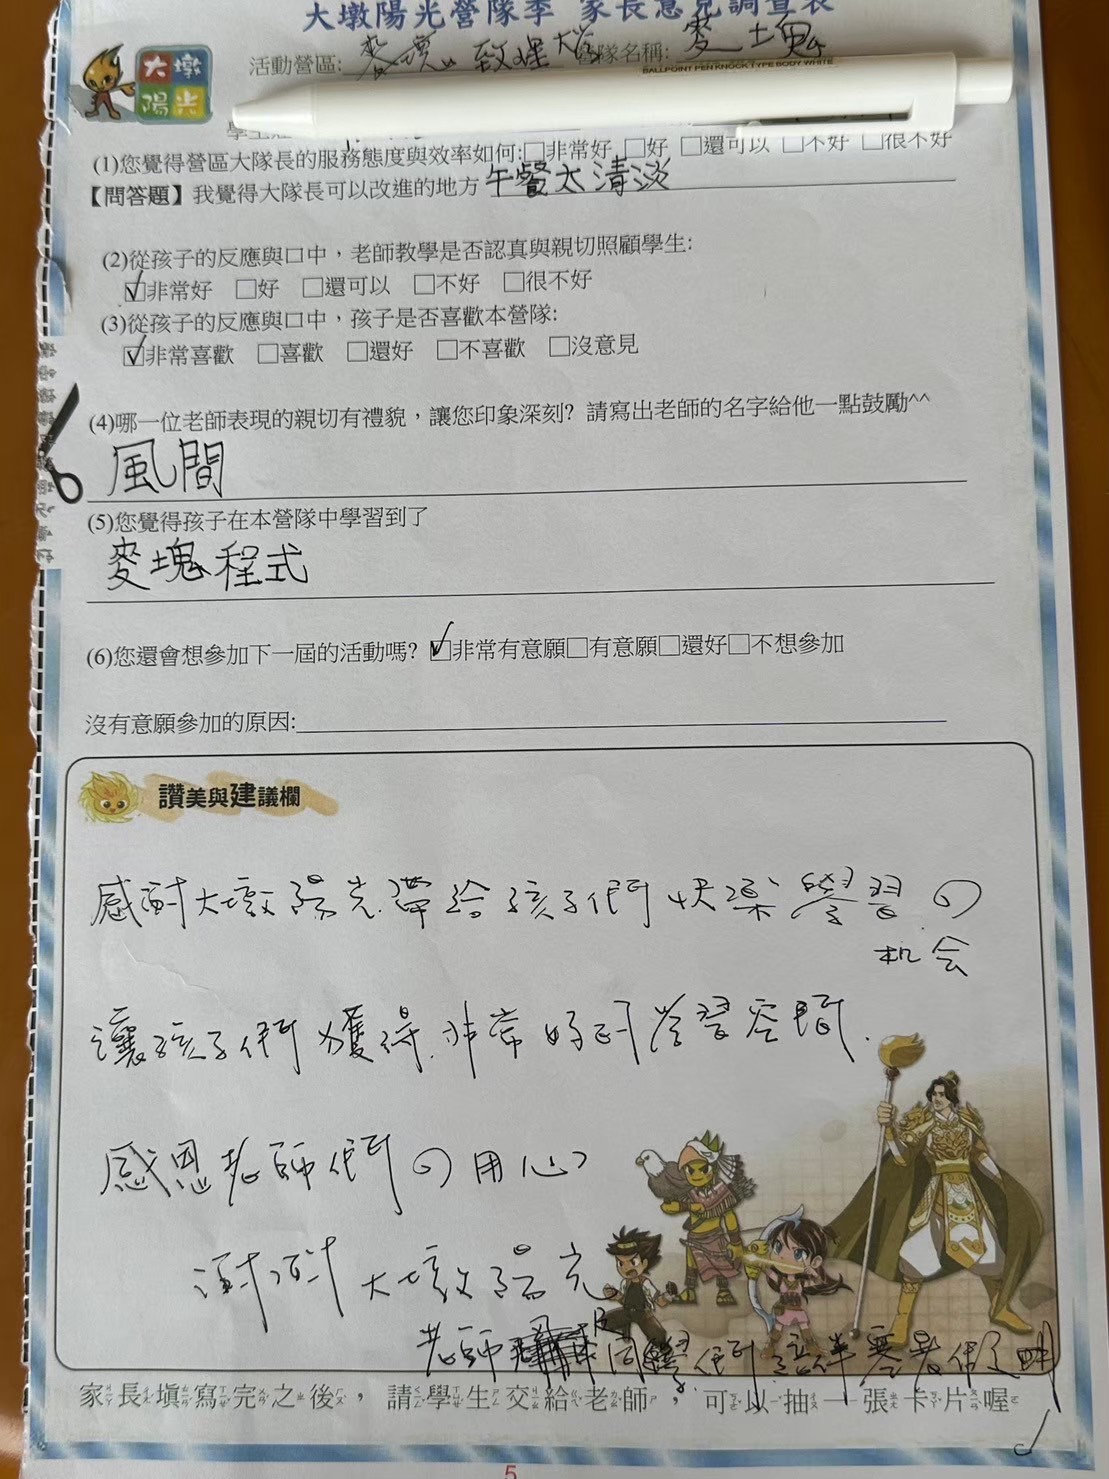 大墩陽光營隊季 家長意見調查表
大墩
陽光
活動營區: 麥塊 致理大 隊名稱: 麥土鬼
BALLPOINT PEN KNOCK TYPE BODY WHITE
(1)您覺得營區大隊長的服務態度與效率如何:□非常好 □好 □還可以 □不好 □很不好
【問答題】我覺得大隊長可以改進的地方 午餐太清淡
(2)從孩子的反應與口中，老師教學是否認真與親切照顧學生:
☑非常好 □好 □還可以 □不好 □很不好
(3)從孩子的反應與口中，孩子是否喜歡本營隊:
☑非常喜歡 □喜歡 □還好 □不喜歡 □沒意見
(4)哪一位老師表現的親切有禮貌，讓您印象深刻? 請寫出老師的名字給他一點鼓勵^^
風間
(5)您覺得孩子在本營隊中學習到了
麥塊程式
(6)您還會想參加下一屆的活動嗎? ☑非常有意願□有意願□還好□不想參加
沒有意願參加的原因:
讚美與建議欄
感謝大墩陽光.帶給孩子們快樂學習の
机会
讓孩子們獲得.非常好的学習空間.
感恩老師們の用心
謝謝大墩陽光
老師及同學們陪伴
家長填寫完之後，請學生交給老師，可以抽一張卡片喔
5